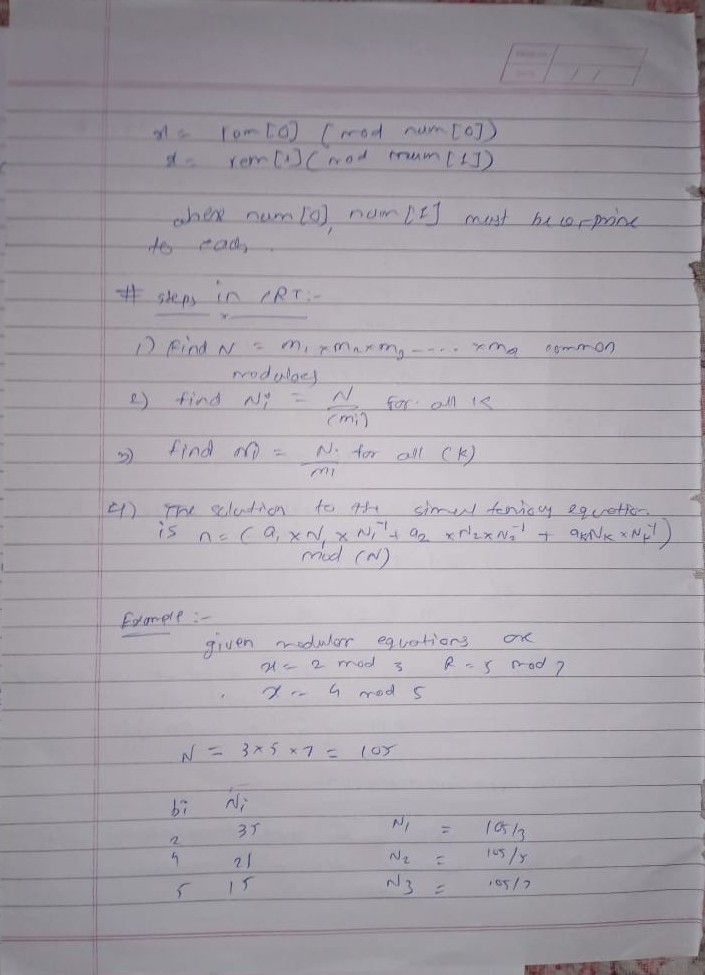 x = rem [0] (mod num [0])
x = rem [1] (mod num [1])
where num [0], num [1] must be co-prime
to each.
# steps in CRT:-
1) Find N = m1 x m2 x m3 ----.. x ma common
modulaes
2) find Ni = N/(mi) for all K
3) find = Ni/mi for all (K)
4) The solution to the equation
is n = ( a1 x N1 x N1^-1 + a2 x N2 x N2^-1 + akNk x Nk^-1)
mod (N)
Example :-
given modular equations are
x = 2 mod 3 R = 5 mod 7
x = 4 mod 5
N = 3 x 5 x 7 = 105
bi Ni
2 35 N1 = 105/3
4 21 N2 = 105/5
5 15 N3 = 105/7